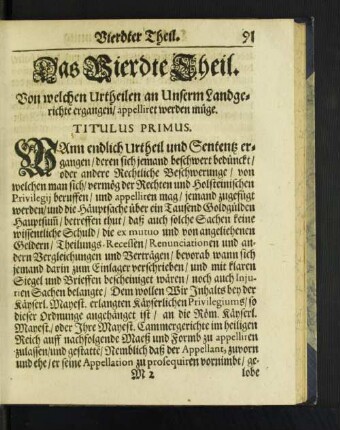 Vierdter Theil. 91
Das Vierdte Theil.
Von welchen Urtheilen an Unserm Landge-
richte ergangen/ appelliret werden müge.
TITULUS PRIMUS.
WAnn endlich Urtheil und Sententz er-
gangen/ deren sich jemand beschwert bedünckt/
oder andere Rechtliche Beschwerunge / von
welchen man sich/ vermög der Rechten und Holsteinischen
Privilegij beruffen/ und appelliren mag / jemand zugefügt
werden/ und die Häuptsache über ein Tausend Goldgülden
Hauptsuṁ/ betreffen thut/ daß auch solche Sachen keine
wissentliche Schuld/ die ex mutuo und von angeliehenen
Geldern/ Theilungs-Recessen/ Renunciationen und an-
dern Vergleichungen und Verträgen/ bevorab wann sich
jemand darin zum Einlager verschrieben/ und mit klaren
Siegel und Brieffen bescheiniget wären/ noch auch Inju-
rien Sachen belangte/ Dem wollen Wir Inhalts bey der
Käyserl. Mayest. erlangten Käyserlichen Privilegiums/ so
dieser Ordnunge angehänget ist/ an die Röm. Käyserl.
Mayest./ oder Ihre Mayest. Cammergerichte im heiligen
Reich auff nachfolgende Maeß und Formb zu appelliren
zulassen/ und gestatte/ Nemblich daß der Appellant/ zuvorn
und ehe/ er seine Appellation zu prosequiren vornimbt/ ge-
M 2 lobe